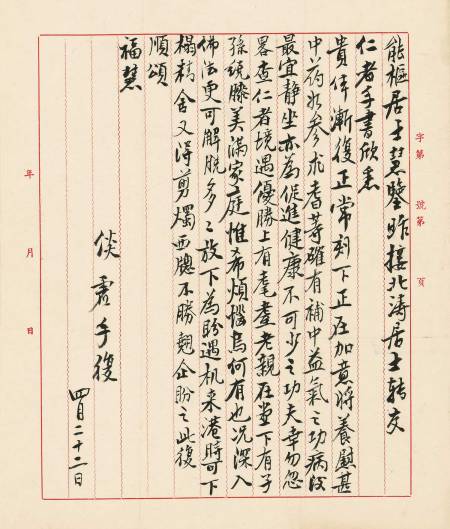 字第 號第 頁
能樞居士慧鑒昨接北濤居士轉交
仁者手書欣悉
貴体漸復正常刻下正在加意將養慰甚
中药如参朮耆苓確有補中益氣之功病後
最宜静坐亦為促進健康不可少之功夫幸勿忽
畧查仁者境遇優勝上有耄耋老親在堂下有子
孫绕膝美滿家庭惟希煩惱烏何有也况深入
佛法更可解脱多々放下為盼遇机来港時可下
榻精舍又得剪燭西牕不勝翹企盼之此復
順頌
福慧
倓虚手復
四月二十二日
年 月 日